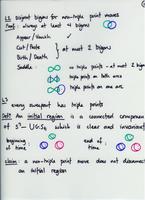 L2 Disjoint bigons for non-triple point moves
Proof: always at least 4 bigons
Appear / Vanish
Cut / Paste } at most 2 bigons
Birth / Death
Saddle : no triple points - at most 2 bigons
triple points on both arcs
triple points on one arc
L3
every sweepout has triple points
Def? An initial region is a connected component
of S³ - which is clear and invariant
beginning of time
end of time
claim: a non-triple point move does not disconnect
an initial region